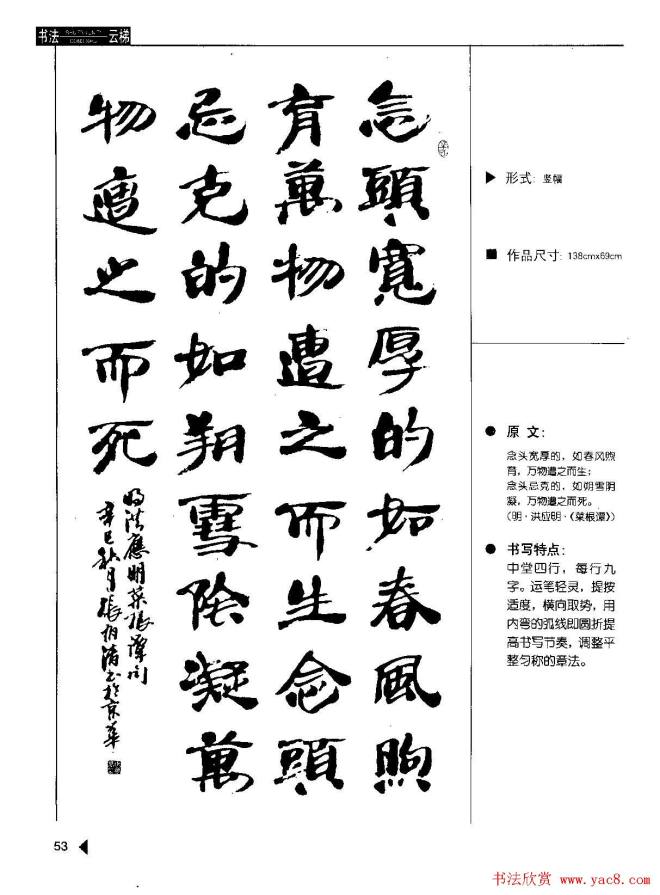 书法
云梯
念頭寬厚的如春風煦
育萬物遭之而生念頭
忌克的如朔雪陰凝萬
物遭之而死
明洪應明菜根譚句
辛巳秋月張伯清书於京華
▶ 形式: 竖幅
■ 作品尺寸: 138cmx69cm
● 原文:
念头宽厚的，如春风煦
育，万物遭之而生；
念头忌克的，如朔雪阴
凝，万物遭之而死。
(明·洪应明·《菜根谭》)
● 书写特点:
中堂四行，每行九
字。运笔轻灵，提按
适度，横向取势，用
内弯的弧线即圆折提
高书写节奏，调整平
整匀称的章法。
53
书法欣赏 www.yac8.com